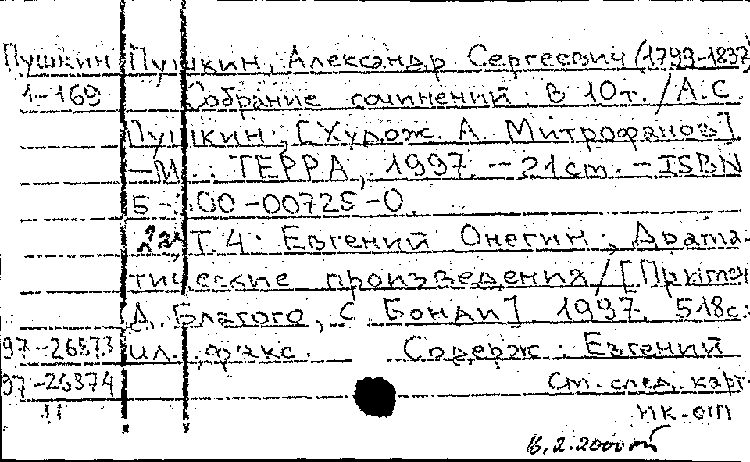 Пушкин Пушкин, Александр Сергеевич (1799-1837
1-169 Собрание сочинений в 10т. / А.С.
Пушкин; [Худож. А. Митрофанов].
-М.: ТЕРРА, 1997. -21cm. -ISBN
5-300-00725-0.
2а, Т.4: Евгений Онегин; Драма-
тические произведения / [Примеч.
Д. Благого, С. Бонди] 1997. 518с:
97-26373 ил., факс. Содерж: Евгений
97-26374 См. след. карт.
11 НК-ОП
16.2.2000